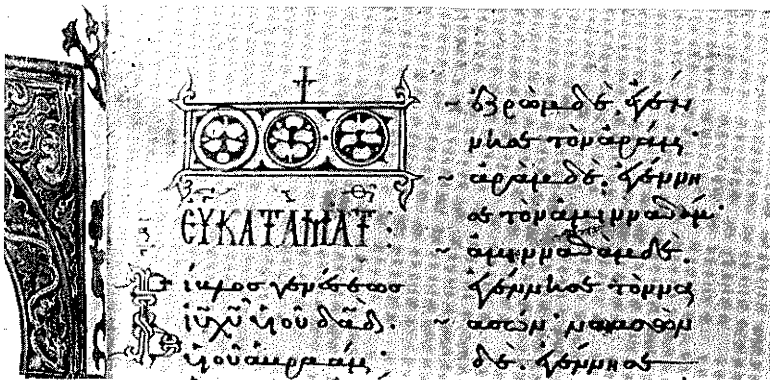 ΕΥ ΚΑΤΑ ΜΑΤ:
Βίβλοσ γενέσεωσ
ἰῦ χῦ ὑιοῦ δᾱδ·
ὑιοῦ ἀβραάμ·
ἐζρὼμ δὲ. ἐγέν
νησε τὸν ἀράμ·
ἀρὰμ δὲ. ἐγέννη
σε τὸν ἀμινναδάμ·
ἀμινναδὰμ δὲ.
ἐγέννησε τὸν να
ασσών· ναασσὼν
δὲ. ἐγέννησε